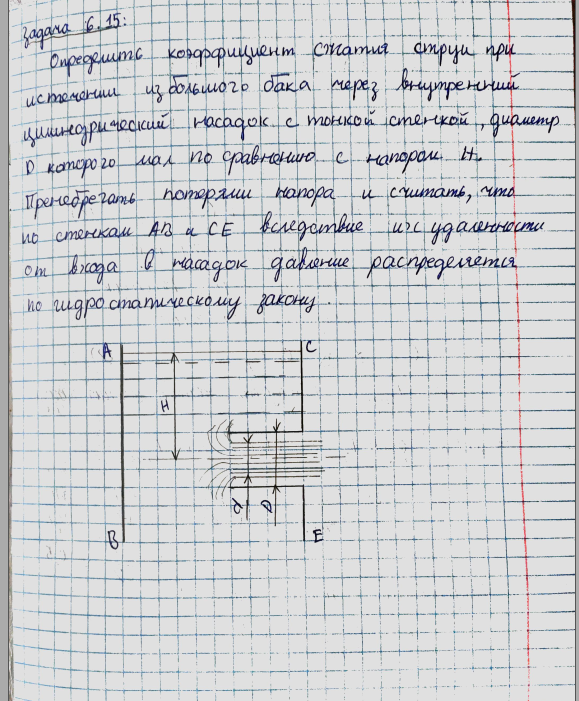 Задача 6.15:
Определить коэффициент сжатия струи при
истечении из большого бака через внутренний
цилиндрический насадок с тонкой стенкой, диаметр
D которого мал по сравнению с напором H.
Пренебрегать потерями напора и считать, что
по стенкам AB и CE вследствие их удаленности
от входа в насадок давление распределяется
по гидростатическому закону.
A C
H
d D
B E